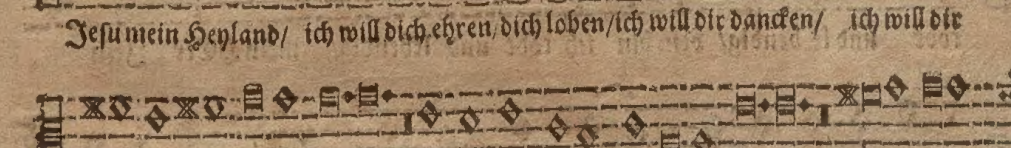 Jesu mein Heyland/ ich will dich ehren/ dich loben/ ich will dir dancken/ ich will dir